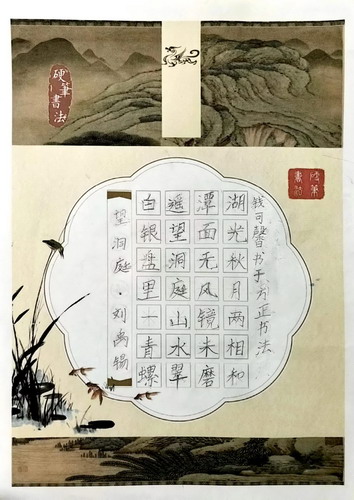 硬筆
書法
可馨书于方正书法
湖光秋月两相和
潭面无风镜未磨
遥望洞庭山水翠
白银盘里一青螺
望洞庭·刘禹锡